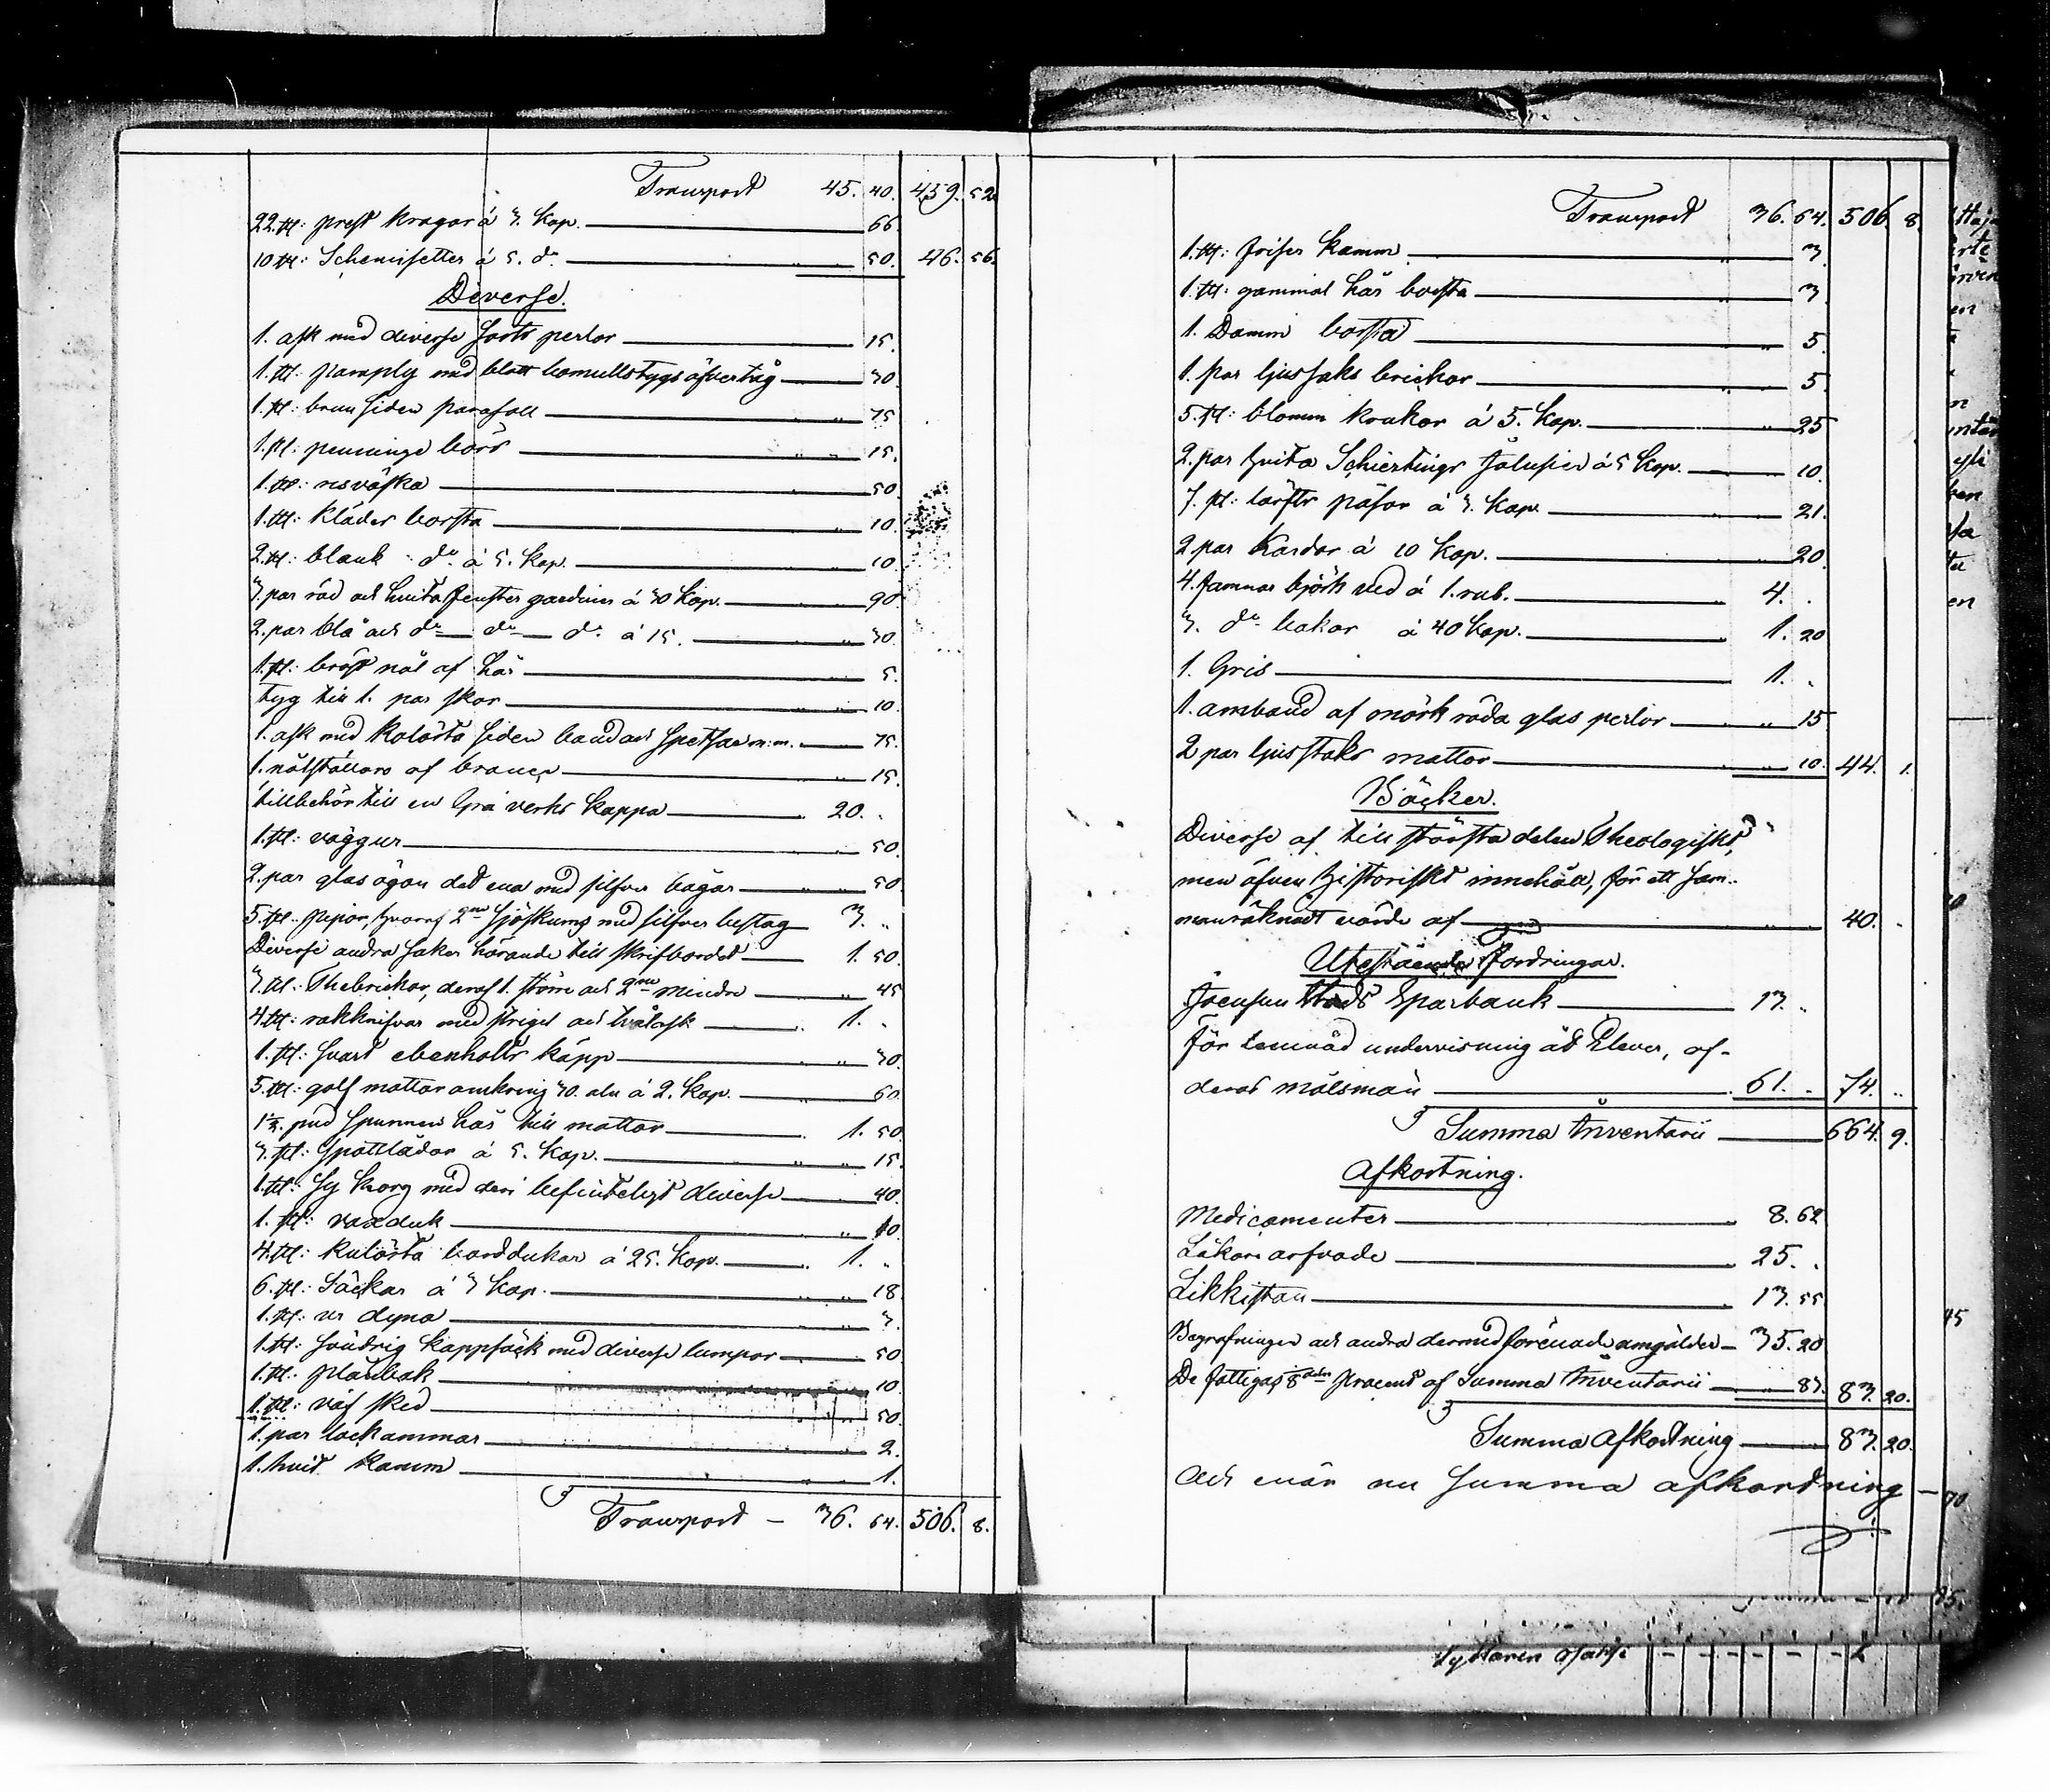 Transport 45. 40. 459. 52
22. st: prest kragar á 3. Kop. 66.
10. st: Schemisetter á 5. do 50. 46. 56.
Diverse.
1. ask med diverse sorts perlor 15.
1. st: pamply med blått bomullstygs öfvertåg 30.
1. st: brun siden parasoll 75
1. st: penninge börs 15.
1. st: resväska 50.
1. st: kläder borsta 10.
2. st: blank do á 5. Kop. 10.
3. par röd och hvita fenster gardiner á 30 Kop. 90.
2. par blå och do do do á 15. 30.
1. st: bröst nål af hår 5.
Tyg till 1. par skor 10.
1. ask med kolörta siden band och spetsar m:m. 75.
1. nålställare af brance 15.
tillbehör till en Grå verks Kappa 20. „
1. st: väggur 50.
2. par glasögon det ena med silfver bågar 50.
5. st. pipor, hvaraf 2ne sjöskums med silfver beslag 3. „
Diverse andra saker hörande till skrifbordet 1. 50.
3. st. Thebrickor, deraf 1. större och 2ne mindre 45
4. st: rakknifvar med strigel och tvålask 1. „
1. st: svart ebenholts käpp 30.
5. st: golf mattor omkring 30. aln á 2. Kop. 60.
1½. pud spunnen hår till mattor 1. 50.
3. st: Spottlådor á 5. Kop. 15.
1. st: Sy korg med deri befinteligt diverse 40.
1. st: vaxduk 10.
4. st: kulörta borddukar á 25. Kop. 1. „
6. st: Säckar á 3 Kop. 18.
1. st: ur dyna 3.
1. st: söndrig kappsäck med diverse lumpor 50.
1. st. plånbok 10.
1. st: väf sked 50.
1. par lockammar 2.
1. hvit kamm 1.
Transport – 36. 64. 506. 8.
Transport 36. 64. 506. 8.
1. st: friser kamm 3.
1. st: gammal hår borsta 3.
1. Damm borsta 5.
1. par ljussaks brickor 5.
5. st: blomm krukor á 5. Kop. 25
2. par hvita Schirtings Jalusier á 5 Kop. 10.
7. st: lärfts påsar á 3. Kop. 21.
2 par Kardor á 10 Kop. 20.
4. famnar björk ved á 1. rub. 4. .
3. do bakar á 40 Kop. 1. 20
1. Gris 1. .
1. armband af mörk röda glas perlor 15
2 par ljusstaks mattor 10. 44. 1.
Böcker.
Diverse af till största delen Theologiskt,
men äfven historiskt innehåll, för ett sam-
manräknadt värde af 40. .
Utestående Fordringar.
Joensuu Stads Sparbank 13. .
För lemnad undervisning åt Elever, af
deras målsmän 61. . 74. „
Summa Inventarii 664. 9.
Afkortning.
Medicamenter 8. 62
Läkare arfvode 25. .
Likkistan 13. 55
Begrafningen och andra dermed förenade omgälder 35. 20
De fattigas 8dels procent af Summa Inventarii 83. 83. 20.
Summa Afkortning 83. 20.
Och enär nu Summa afkortning –